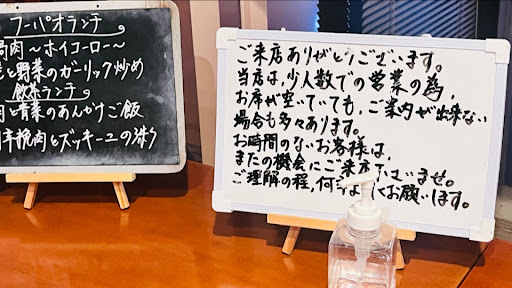 フーパオランチ
肉～ホイコーロー～
と野菜のガーリック炒め
飲茶ランチ
と青菜のあんかけご飯
挽肉とズッキーニの
ご来店ありがとうございます。
当店は、少人数での営業の為、
お席が空いていても、ご案内が出来ない
場合も多々あります。
お時間のないお客様は、
またの機会にご来店 ませ。
ご理解の程、何 くお願います。